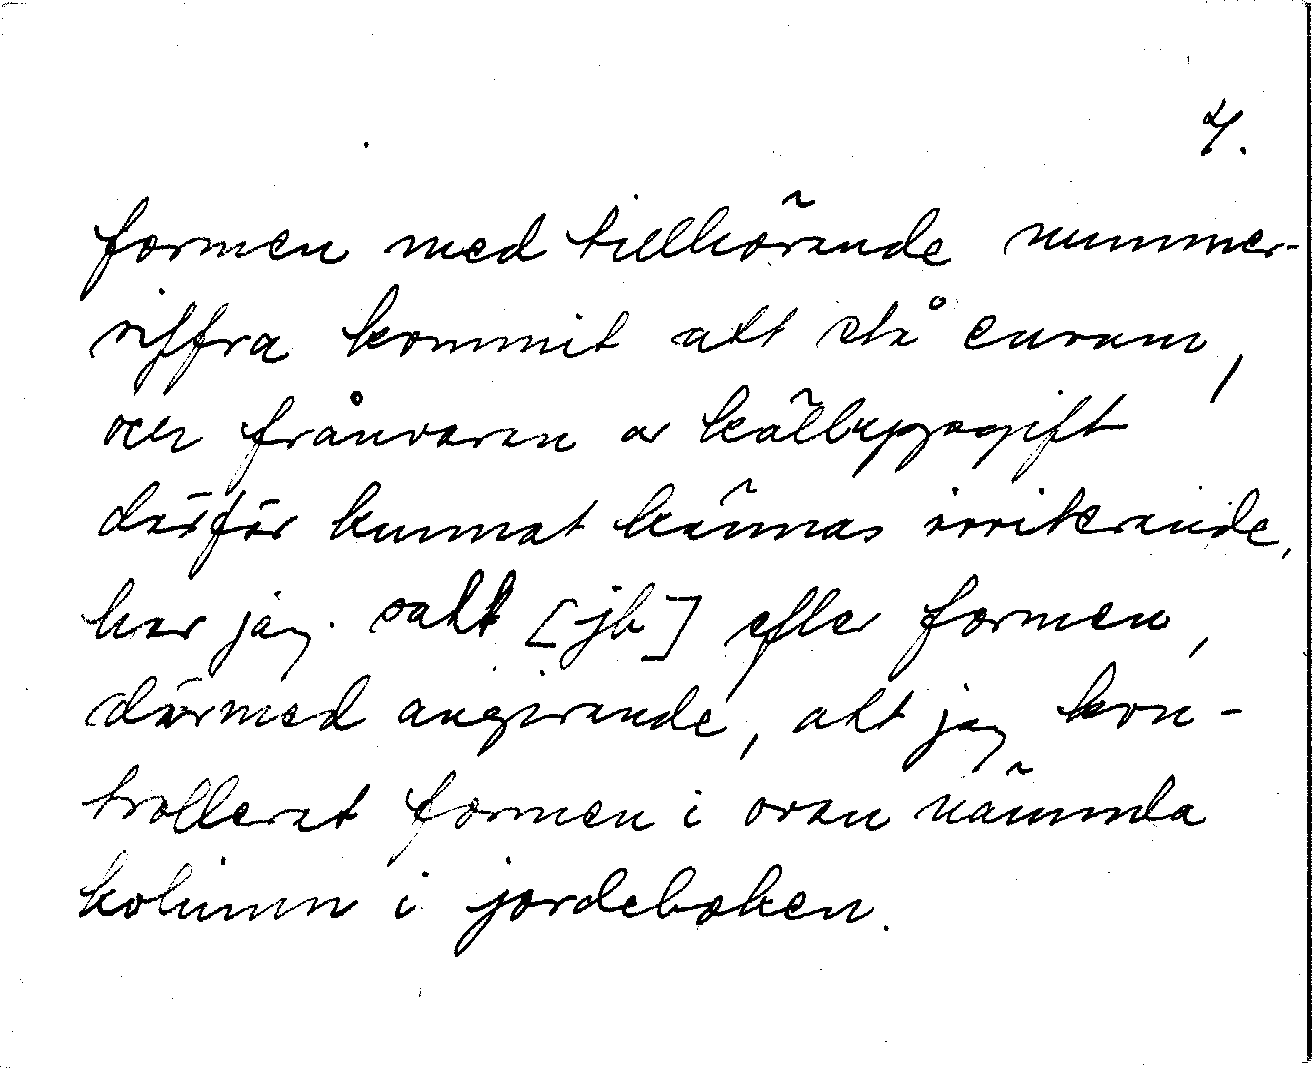 4.
formen med tillhörande nummer-
siffra kommit att stå ensam,
och frånvaron av källuppgift
därför kunnat kännas irriterande,
har jag satt [jb] efter formen,
därmed angivande, att jag kon-
trollerat formen i ovan nämnda
kolumn i jordeboken.